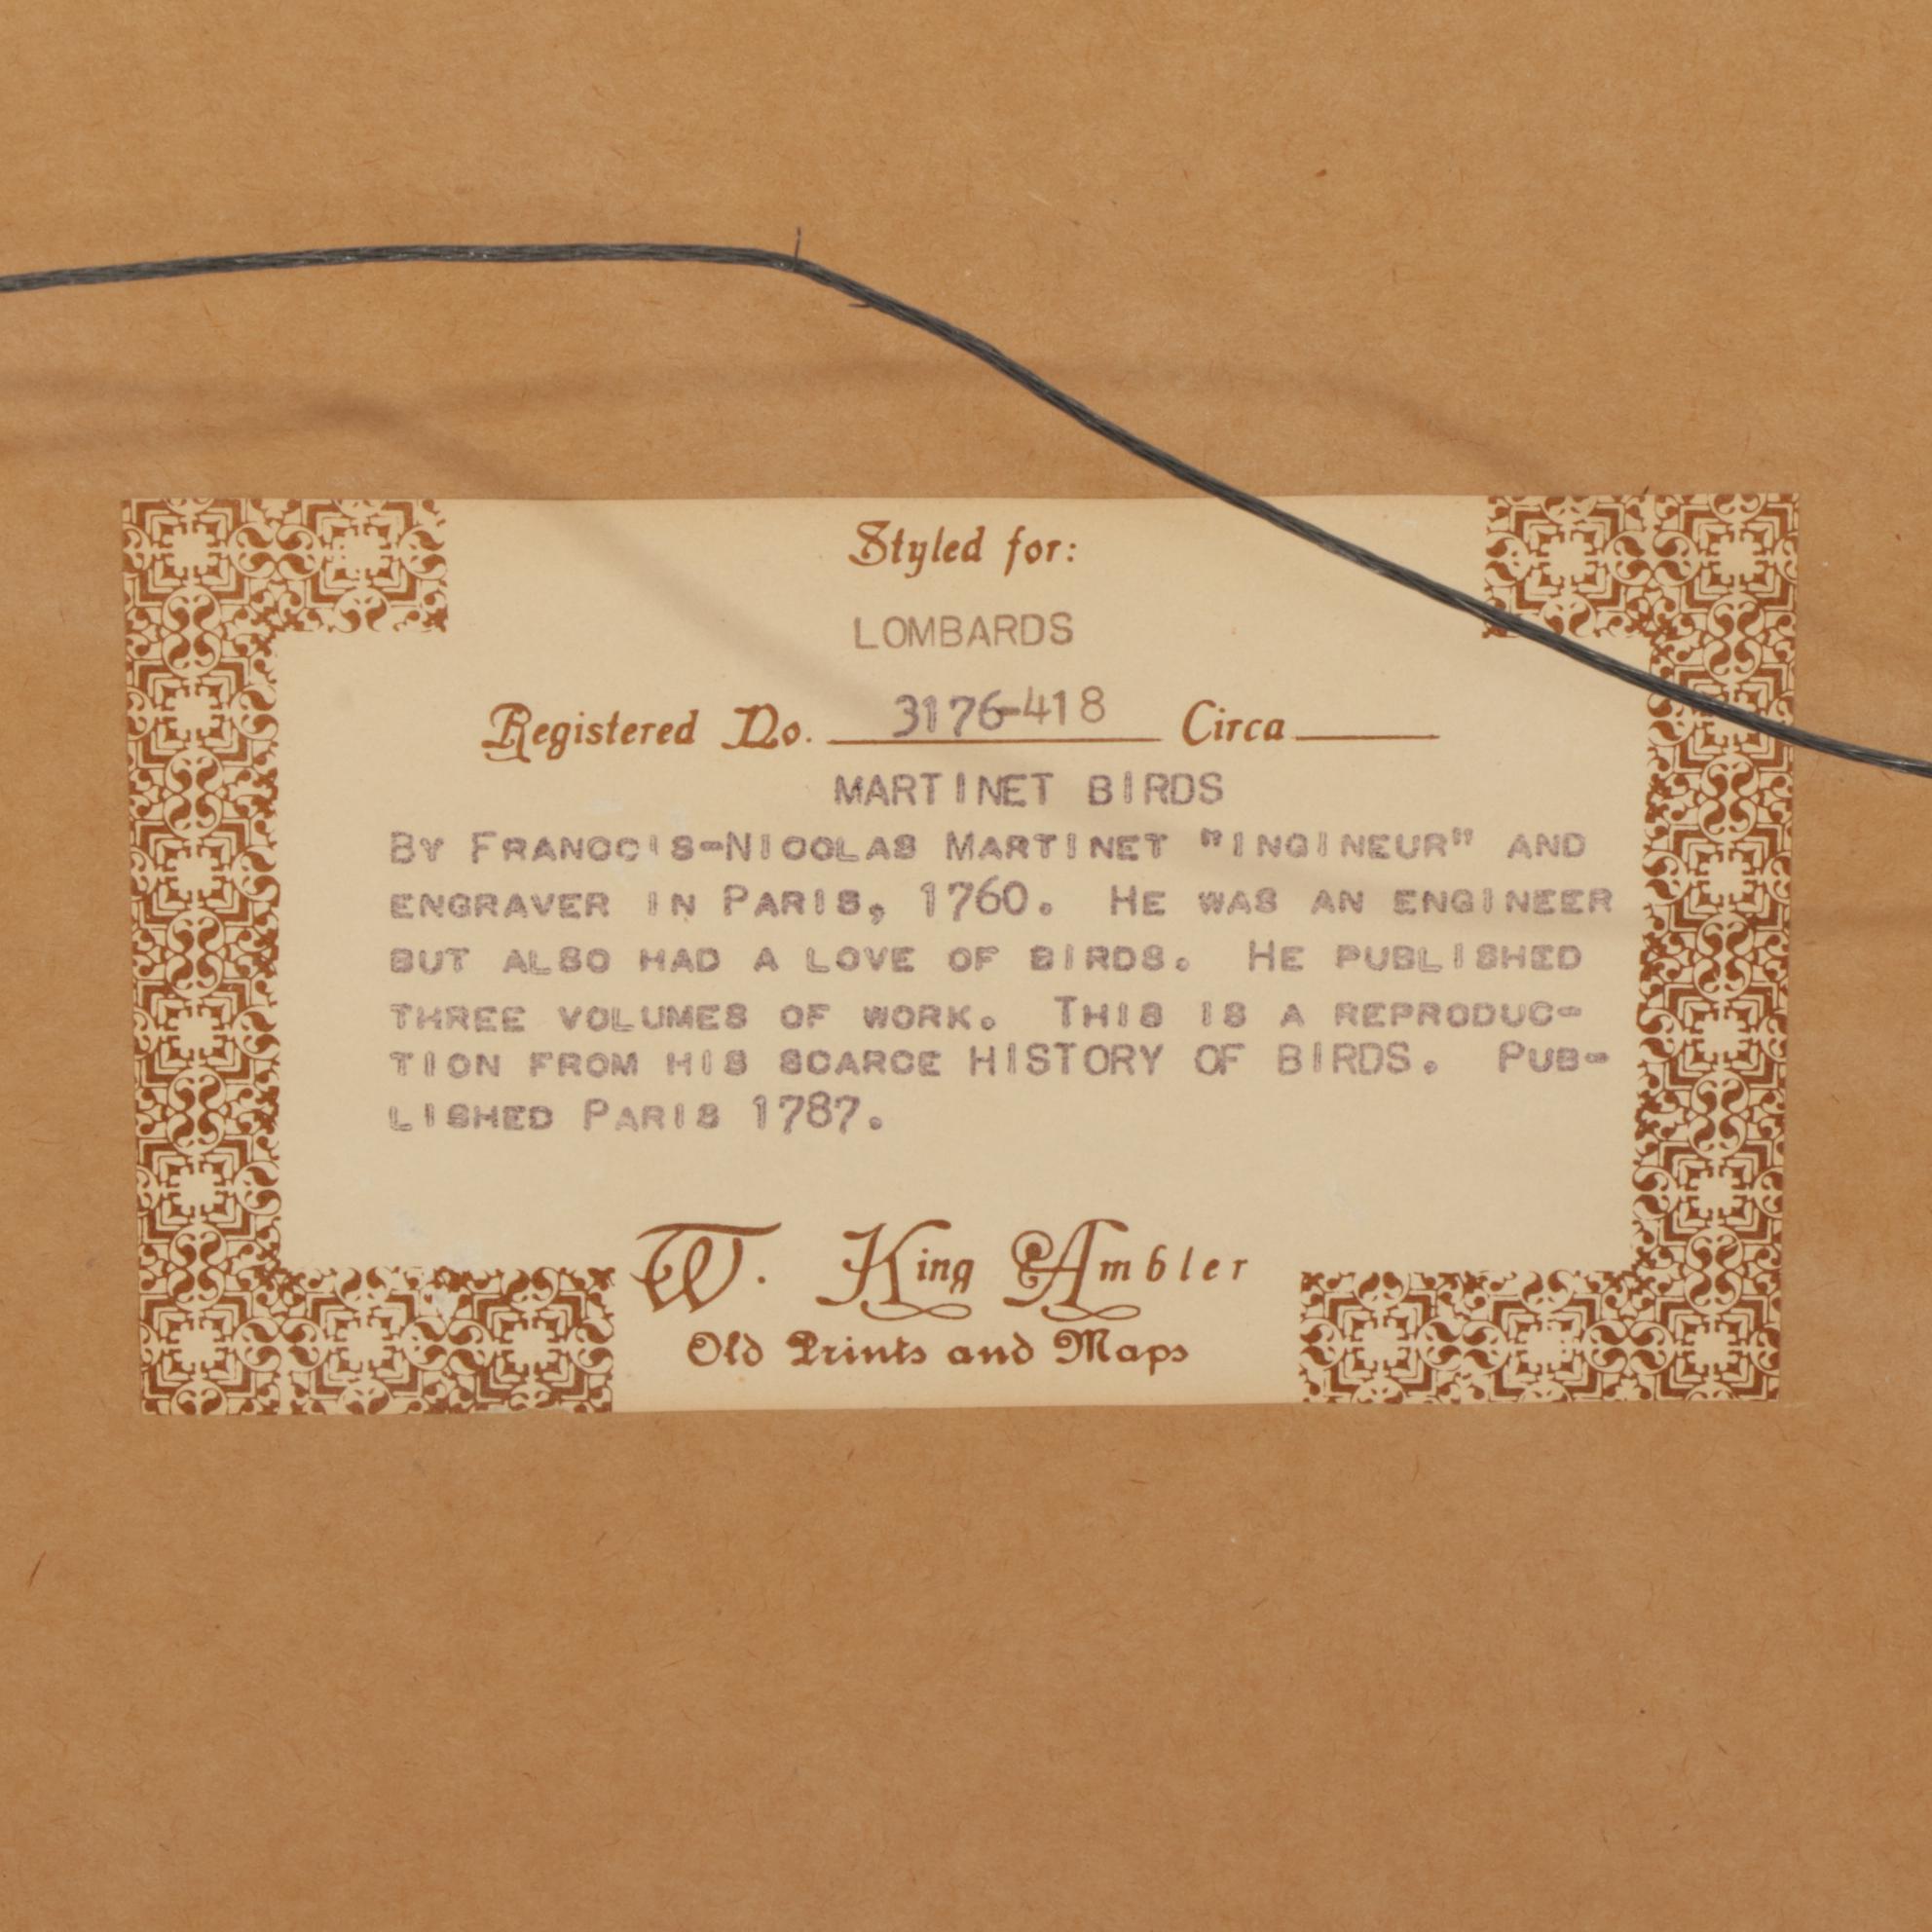 Styled for:
LOMBARDS
Registered No. 3176-418 Circa
MARTINET BIRDS
BY FRANCCIS-NICOLAS MARTINET "INGINEUR" AND
ENGRAVER IN PARIS, 1760. HE WAS AN ENGINEER
BUT ALSO HAD A LOVE OF BIRDS. HE PUBLISHED
THREE VOLUMES OF WORK. THIS IS A REPRODUC-
TION FROM HIS SCARCE HISTORY OF BIRDS. PUB-
LISHED PARIS 1787.
W. King Ambler
Old Prints and Maps